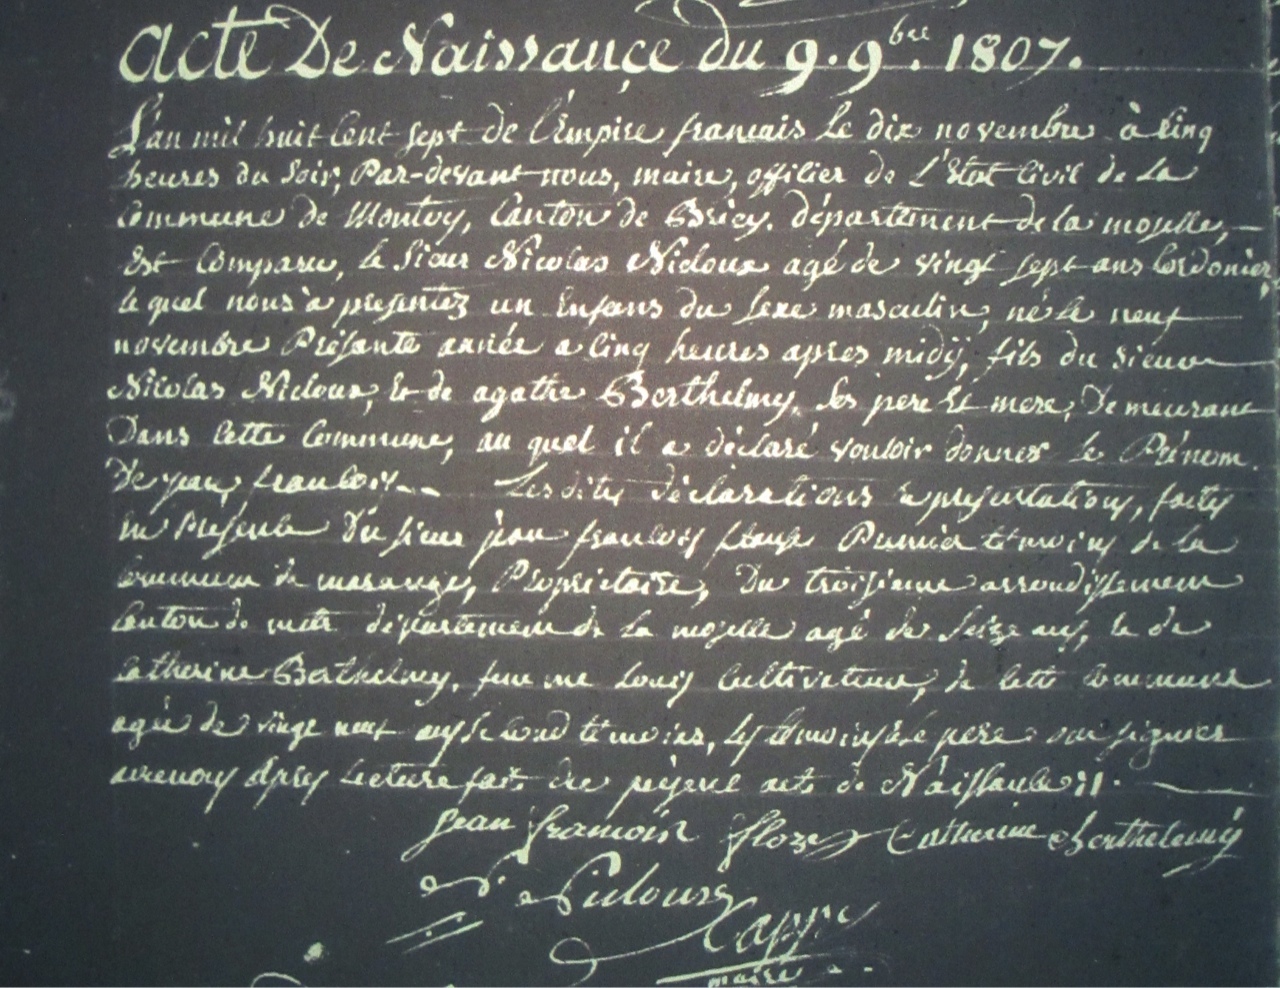 Acte De Naissançe du 9. 9bre. 1807.
L'an mil huit Cent sept de l'Empire francais le dix novembre à Cinq
heures du Soir, Par-devant nous, maire, officier de L'Etat Civil de La
Commune de Montoy, Canton de Briey. département de la moselle,
est Comparu, le Sieur Nicolas Nicloux agé de vingt sept ans Cordonier,
le quel nous à presentez un Enfans du Sexe masculin, né le neuf
novembre Présante année a Cinq heures apres midÿ, fils du Sieur
Nicolas Nicloux, Et de agathe Berthelmy, Ses pere Et mere, Demeurant
Dans Cette Commune, au quel il a déclaré vouloir donner le Prénom
De jean, francois Les dites déclarations & presentations, faites
en Présence Du sieur jean francois Premier témoins de la
Commune de marange, Propriétaire, Du troisieme arrondissement
Canton de metz département de La moselle agé de Seize ans, & de
Catherine Berthelmy, Louis Cultivateur, de Cette Commune
agée de vingt neuf ans Second témoins, Les témoins & le pere ont signer
avenous après Lecture fait du présent acte de Naissance ://.
Jean francois floze Catherine Berthelemÿ
N. Nicloux
Cappy
maire